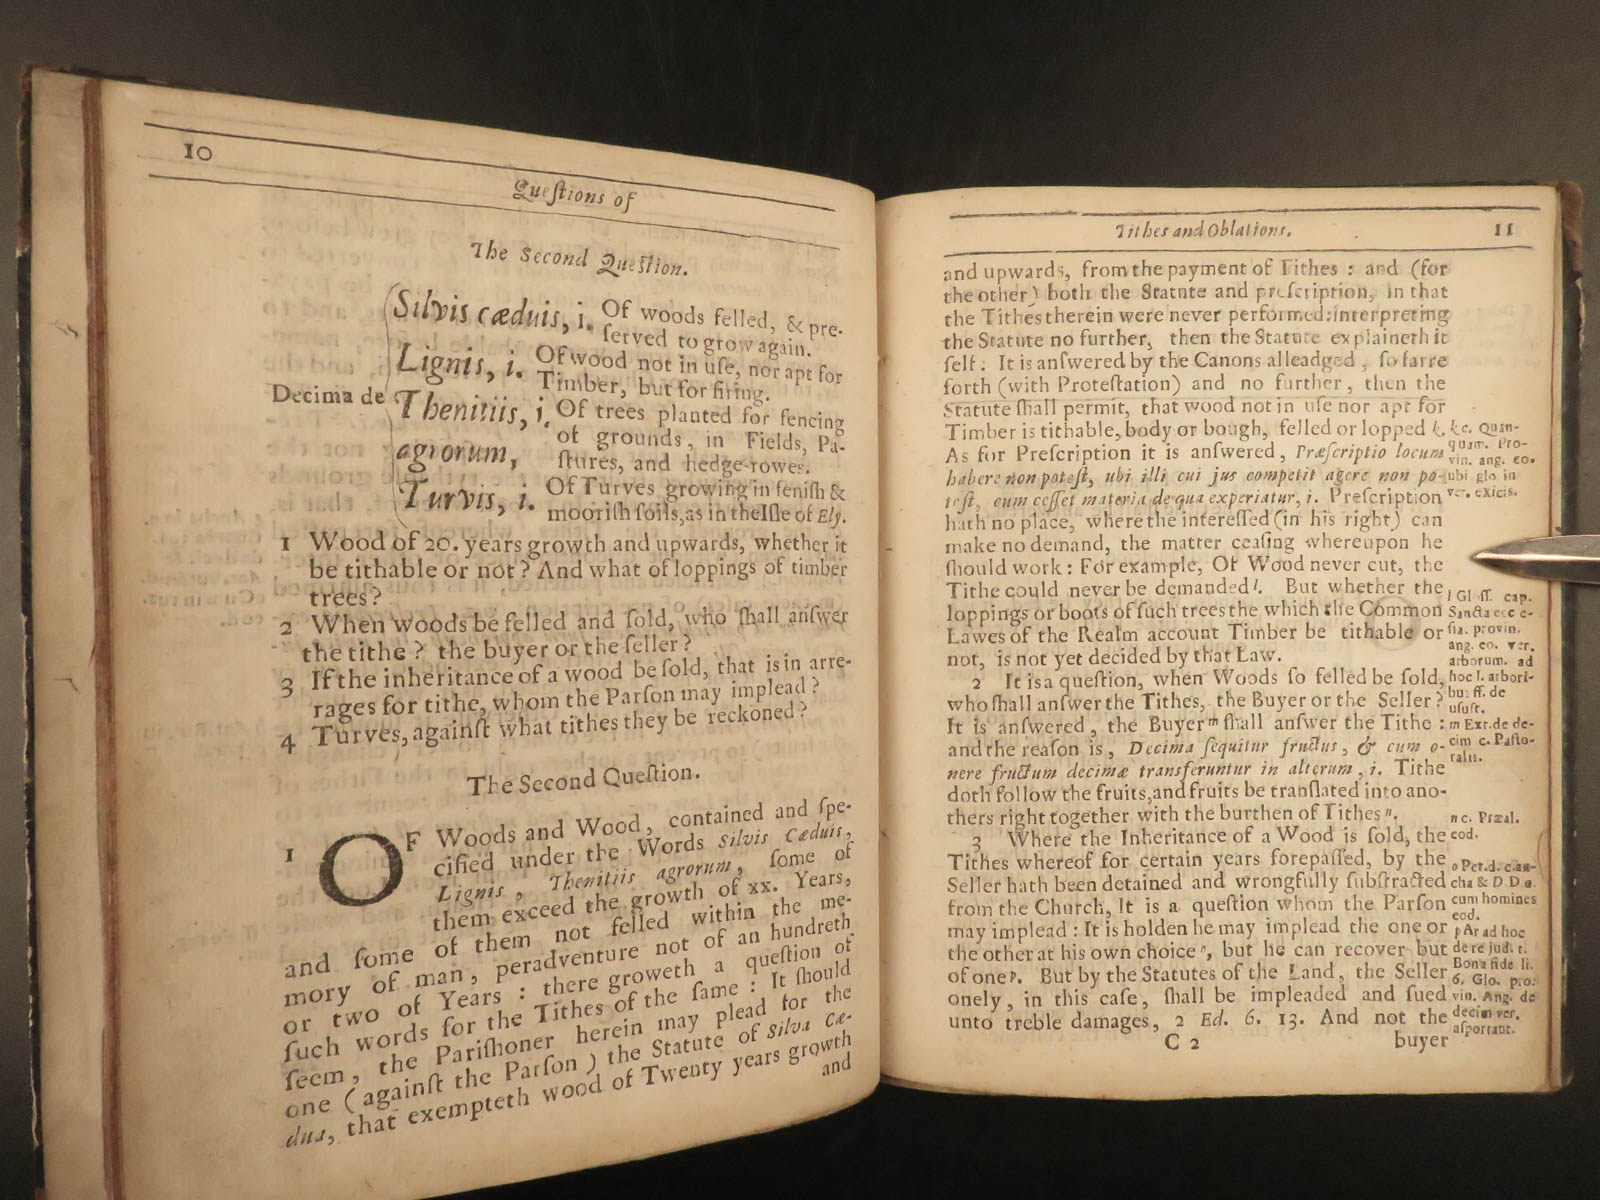 10
Queſtions of
The Second Queſtion.
Decima de
Silvis cæduis, i. Of woods felled, & pre-
ſerved to grow again.
Lignis, i. Of wood not in uſe, nor apt for
Timber, but for firing.
Thenitiis, i. Of trees planted for fencing
agrorum, of grounds, in Fields, Pa-
ſtures, and hedge-rowes.
Turvis, i. Of Turves growing in feniſh &
mooriſh ſoils, as in the Iſle of Ely.
1 Wood of 20. years growth and upwards, whether it
be tithable or not? And what of loppings of timber
trees?
2 When woods be felled and ſold, who ſhall anſwer
the tithe? the buyer or the ſeller?
3 If the inheritance of a wood be ſold, that is in arre-
rages for tithe, whom the Parſon may implead?
4 Turves, againſt what tithes they be reckoned?
The Second Queſtion.
1 OF Woods and Wood, contained and ſpe-
cified under the Words Silvis Cæduis,
Lignis, Thenitiis agrorum, ſome of
them exceed the growth of xx. Years,
and ſome of them not felled within the me-
mory of man, peradventure not of an hundreth
or two of Years : there groweth a queſtion of
ſuch words for the Tithes of the ſame : It ſhould
ſeem, the Pariſhoner herein may plead for the
one (againſt the Parſon) the Statute of Silva Cæ-
dua, that exempteth wood of Twenty years growth
and
Tithes and Oblations. 11
and upwards, from the payment of Tithes : and (for
the other) both the Statute and preſcription, in that
the Tithes therein were never performed: interpreting
the Statute no further, then the Statute explaineth it
ſelf. It is anſwered by the Canons alleadged, ſo farre
forth (with Proteſtation) and no further, then the
Statute ſhall permit, that wood not in uſe nor apt for
Timber is tithable, body or bough, felled or lopped k.
As for Preſcription it is anſwered, Præſcriptio locum
habere non poteſt, ubi illi cui jus competit agere non po-
teſt, cum ceſſet materia de qua experiatur, i. Preſcription
hath no place, where the intereſſed (in his right) can
make no demand, the matter ceaſing whereupon he
ſhould work : For example, Of Wood never cut, the
Tithe could never be demanded l. But whether the
loppings or boots of ſuch trees the which the Common
Lawes of the Realm account Timber be tithable or
not, is not yet decided by that Law.
2 It is a queſtion, when Woods ſo felled be ſold,
who ſhall anſwer the Tithes, the Buyer or the Seller?
It is anſwered, the Buyer m ſhall anſwer the Tithe :
and the reaſon is, Decima ſequitur fructus, & cum o-
nere fructum decimæ transferuntur in alterum, i. Tithe
doth follow the fruits, and fruits be tranſlated into ano-
thers right together with the burthen of Tithes n.
3 Where the Inheritance of a Wood is ſold, the
Tithes whereof for certain years forepaſſed, by the
Seller hath been detained and wrongfully ſubſtracted
from the Church, It is a queſtion whom the Parſon
may implead : It is holden he may implead the one or
the other at his own choice o, but he can recover but
of one p. But by the Statutes of the Land, the Seller
onely, in this caſe, ſhall be impleaded and ſued
unto treble damages, 2 Ed. 6. 13. And not the
C 2 buyer
k c. Quan-
quam. Pro-
vin. ang. eo.
ubi. glo in
ver. exicis.
l Gloſſ. cap.
Sancta ecc e-
ſia. provin.
ang. eo. ver.
arborum. ad
hoc l. arbori-
bus ff. de
uſuſr.
m Extr. de de-
cim c. Paſto-
ralis.
n c. Præal.
eod.
o Pet. d. c an-
cha & D. D o.
cum homines
eod.
p Ar ad hoc
de re judi t.
Bona fide li.
6. Glo. pro.
vin. Ang. de
decim ver.
aſportant.